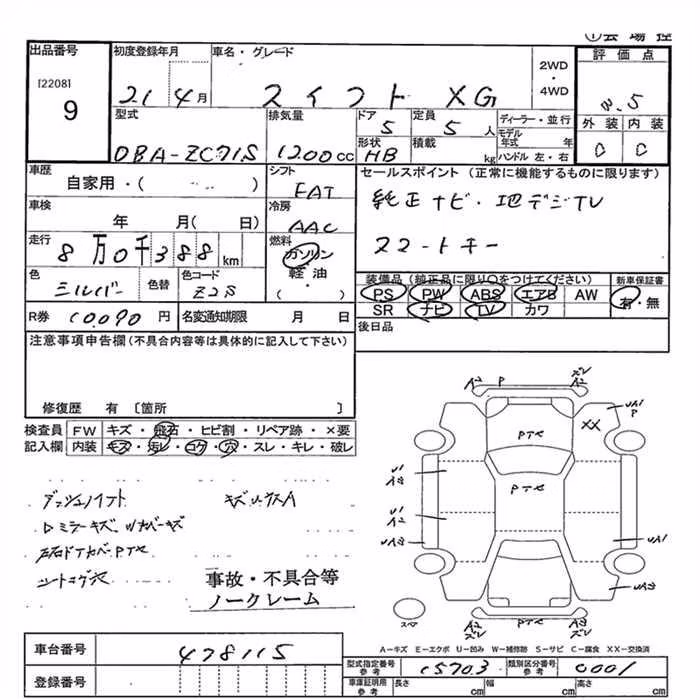 ①会場控
出品番号 初度登録年月 車名・グレード 2WD ・ 4WD 評価点
[2208]
9
21 4月 スイフト XG 3.5
型式 排気量 ドア 定員 ディーラー・並行 外装 内装
DBA-ZC71S 1200cc 5 5人 モデル年式 年 C C
形状 積載 ハンドル 左・右
HB kg
車歴 シフト セールスポイント (正常に機能するものに限ります)
自家用・( ) FAT 純正ナビ・地デジTV
車検 冷房
年 月( 日) AAC スマートキー
走行 燃料
8万0千388km ガソリン 軽油・( )
色 色替 色コード 装備品(純正品に限り○をつけてください) 新車保証書
シルバー Z2S PS PW ABS エアB AW 有・無
SR ナビ TV カワ
R券 10,090円 名変通知期限 月 日 後日品
注意事項申告欄(不具合内容等は具体的に記入して下さい)
修復歴 有 [箇所 ]
検査員 FW キズ・飛石・ヒビ割・リペア跡・×要
記入欄 内装 キズ・汚レ・コゲ・穴・スレ・キレ・破レ
A2 P A2 ズレ
UA1 P
XX
PTキ
PTキ
U1
A2
U1
A2
UA3
UA1
UA2
スペア
A2 ズレ PTキ A2 ズレ
キズリクスA
シートコゲ穴
事故・不具合等
ノークレーム
A-キズ E-エクボ U-凹み W-補修跡 S-サビ C-腐食 XX-交換済
車台番号 478115
型式指定番号 参考 15703 類別区分番号 参考 0001
登録番号 車庫証明用 参考 長さ cm 幅 cm 高さ cm